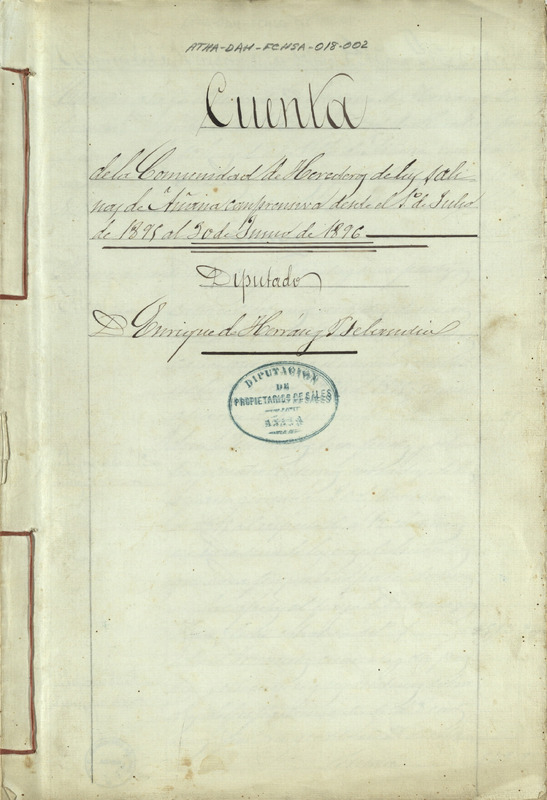 ATHA-DAH-FCHSA-018-002
Cuenta
de la Comunidad de Herederos de las Sali-
nas de Añana comprensiva desde el 1º de Julio
de 1895 al 30 de Junio de 1896
Diputado
D Enrique de Herrán y
DIPUTACION
DE
PROPIETARIOS DE SALES
AÑANA